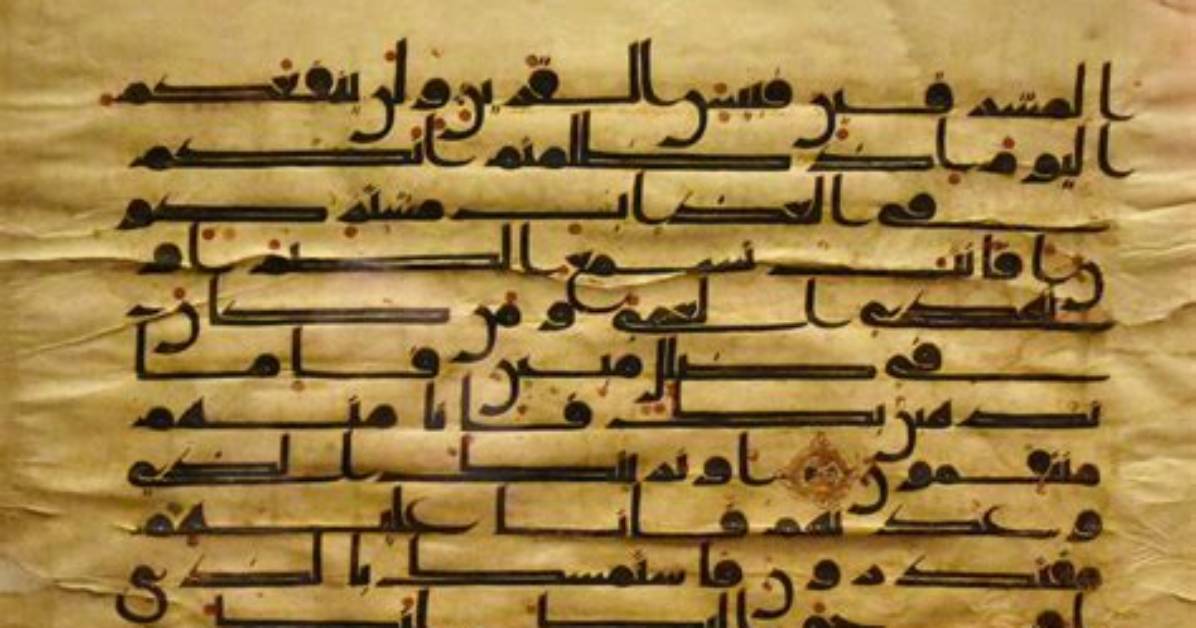 المشرقين فبئس القرين ولن ينفعكم
اليوم إذ ظلمتم أنكم
في العذاب مشتركو
ن أفأنت تسمع الصم أو
تهدي العمي ومن كان
في ضلل مبين فإما
نذهبن بك فإنا منهم
منتقمون أو نرينك الذي
وعدنهم فإنا عليهم
مقتدرون فاستمسك بالذي
أوحي إليك إنك